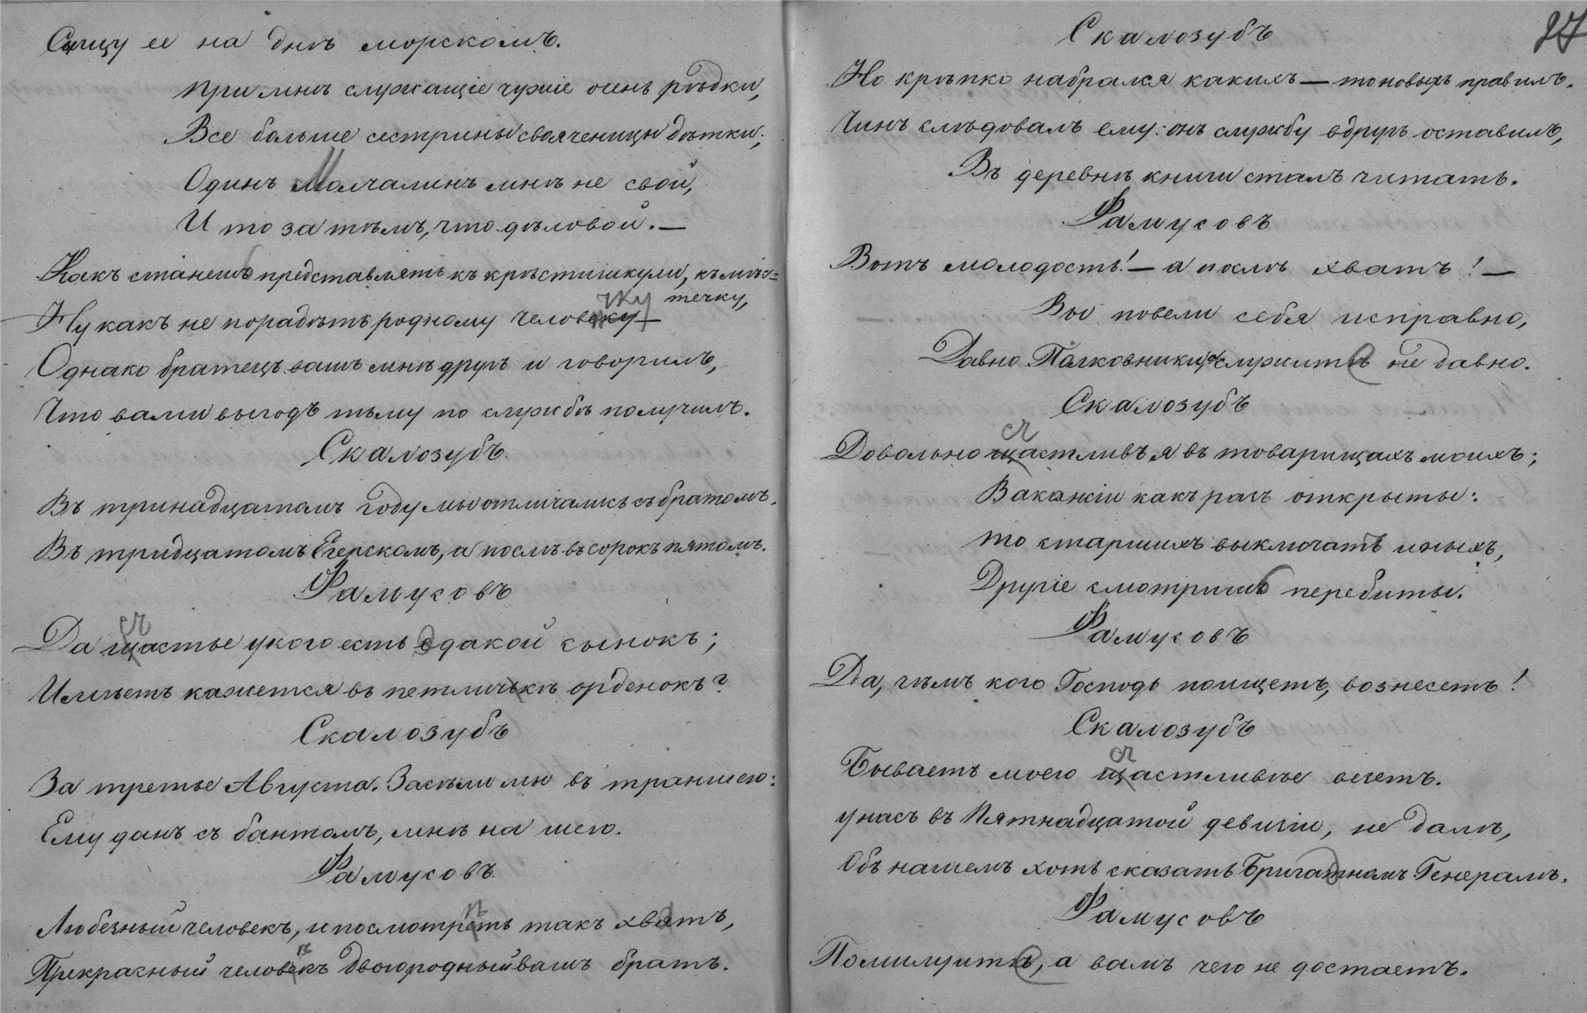 Сыщу ее на днѣ морскомъ.
При мнѣ служащіе чужіе очень рѣдки,
Все больше сестрины свояченицы дѣтки;
Одинъ Молчалинъ мнѣ не свой,
И то за тѣмъ, что дѣловой. —
Какъ станешь представлять къ крѣстишкули, къ мѣс=
течку,
Ну какъ не порадѣть родному человечку
Однако братецъ вашъ мнѣ другъ и говорилъ,
Что вами выгодъ тьму по службѣ получилъ.
Скалозубъ
Въ тринадцатомъ году мы отличались съ братомъ.
Въ тридцатомъ Егерскомъ, а послѣ въ сорокъ пятомъ.
Фамусовъ
Да счастье у кого есть эдакой сынокъ;
Имѣетъ кажется въ петличкѣ орденокъ?
Скалозубъ
За третье Августа. Засѣли мы въ траншею:
Ему данъ съ бантомъ, мнѣ на шею.
Фамусовъ
Любезный человекъ, и посмотрѣть такъ хватъ,
Прекрасный человѣкъ двоюродный вашъ братъ.
Скалозубъ
27
Но крѣпко набрался какихъ — то новыхъ правилъ.
Чинъ слѣдовалъ ему: онъ службу вдругъ оставилъ,
Въ деревнѣ книги сталъ читать.
Фамусовъ
Вотъ молодость! — а послѣ хватъ! —
Вы повели себя исправно,
Давно Палковники, служите не давно.
Скалозубъ
Довольно счастливъ я въ товарищахъ моихъ;
Вакансіи какъ разъ открыты:
то старшихъ выключатъ иныхъ,
Другіе смотришь перебиты.
Фамусовъ
Да, чѣмъ кого Господь поищетъ, вознесетъ!
Скалозубъ
Бываетъ моего счастливѣе везетъ.
у насъ въ Пятнадцатой девизіи, не далѣ,
Объ нашемъ хоть сказать Бригадномъ Генералѣ.
Фамусовъ
Помилуйте, а вамъ чего не достаетъ.